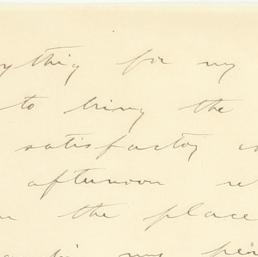 ything for my
to bring the
satisfactory
afternoon
the place
my